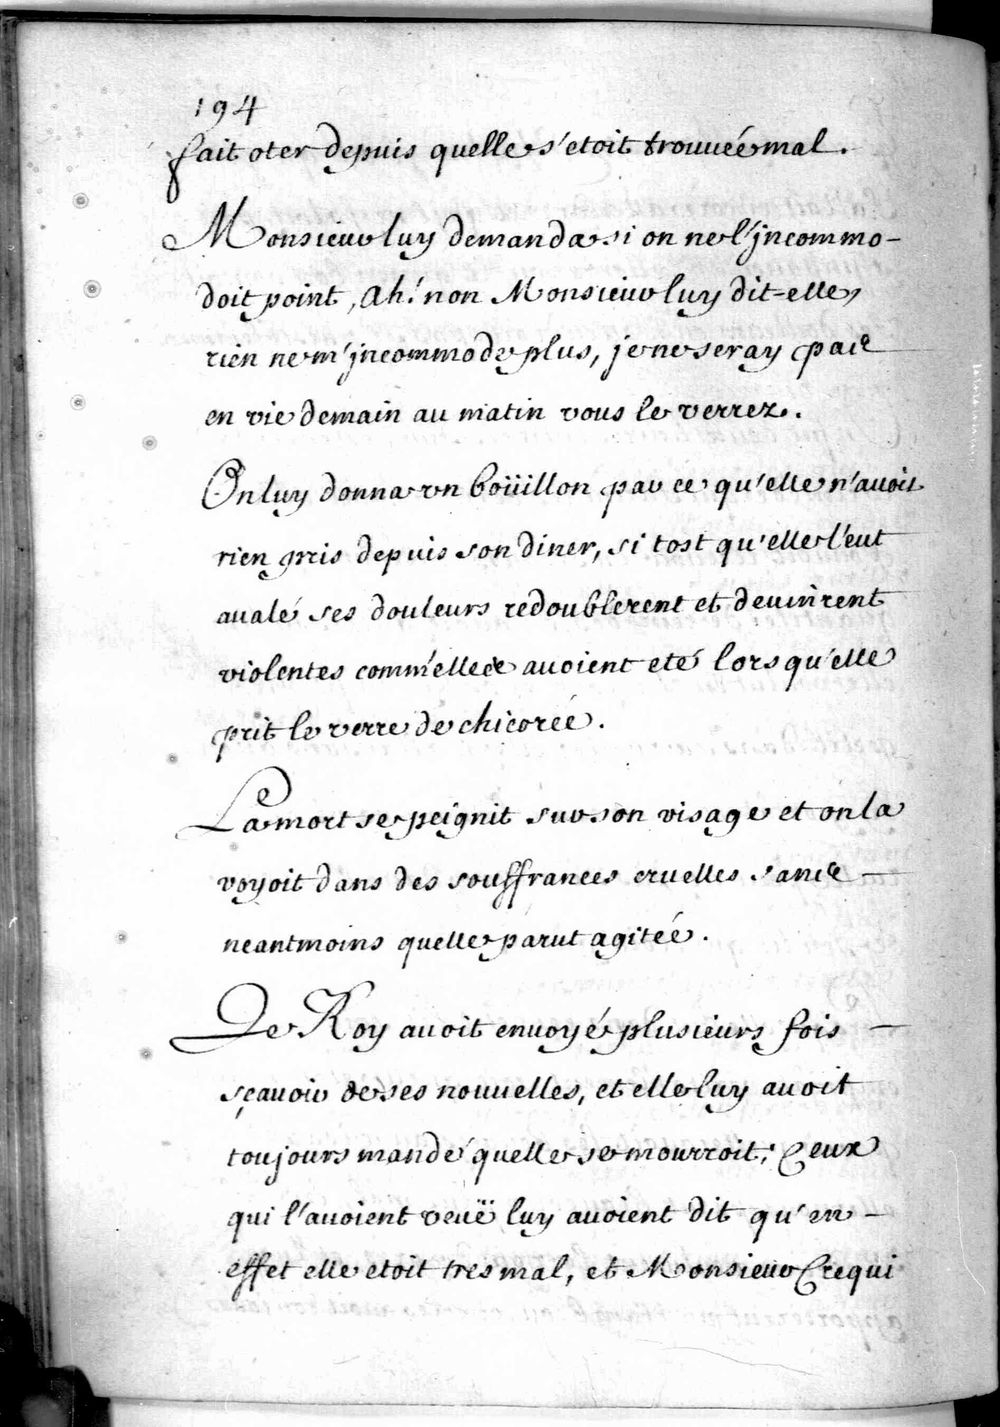 194
fait oter depuis quelle s'etoit trouuée mal.
Monsieur luy demanda si on ne l'jncommo-
doit point, ah! non Monsieur luy dit-elle,
rien ne m'jncommode plus, je ne seray pas
en vie demain au matin vous le verrez.
On luy donna vn boüillon par ce qu'elle n'auoit
rien pris depuis son diner, si tost qu'elle l'eut
aualé ses douleurs redoublerent et deuinrent
violentes comm'elles auoient eté lorsqu'elle
prit le verre de chicorée.
La mort se peignit sur son visage et on la
voyoit dans des souffrances cruelles sans
neantmoins quelle parut agitée.
Le Roy auoit enuoyé plusieurs fois
sçauoir de ses nouuelles, et elle luy auoit
toujours mandé quelle se mourroit; Ceux
qui l'auoient veuë luy auoient dit qu'en
effet elle etoit tres mal, et Monsieur Crequi